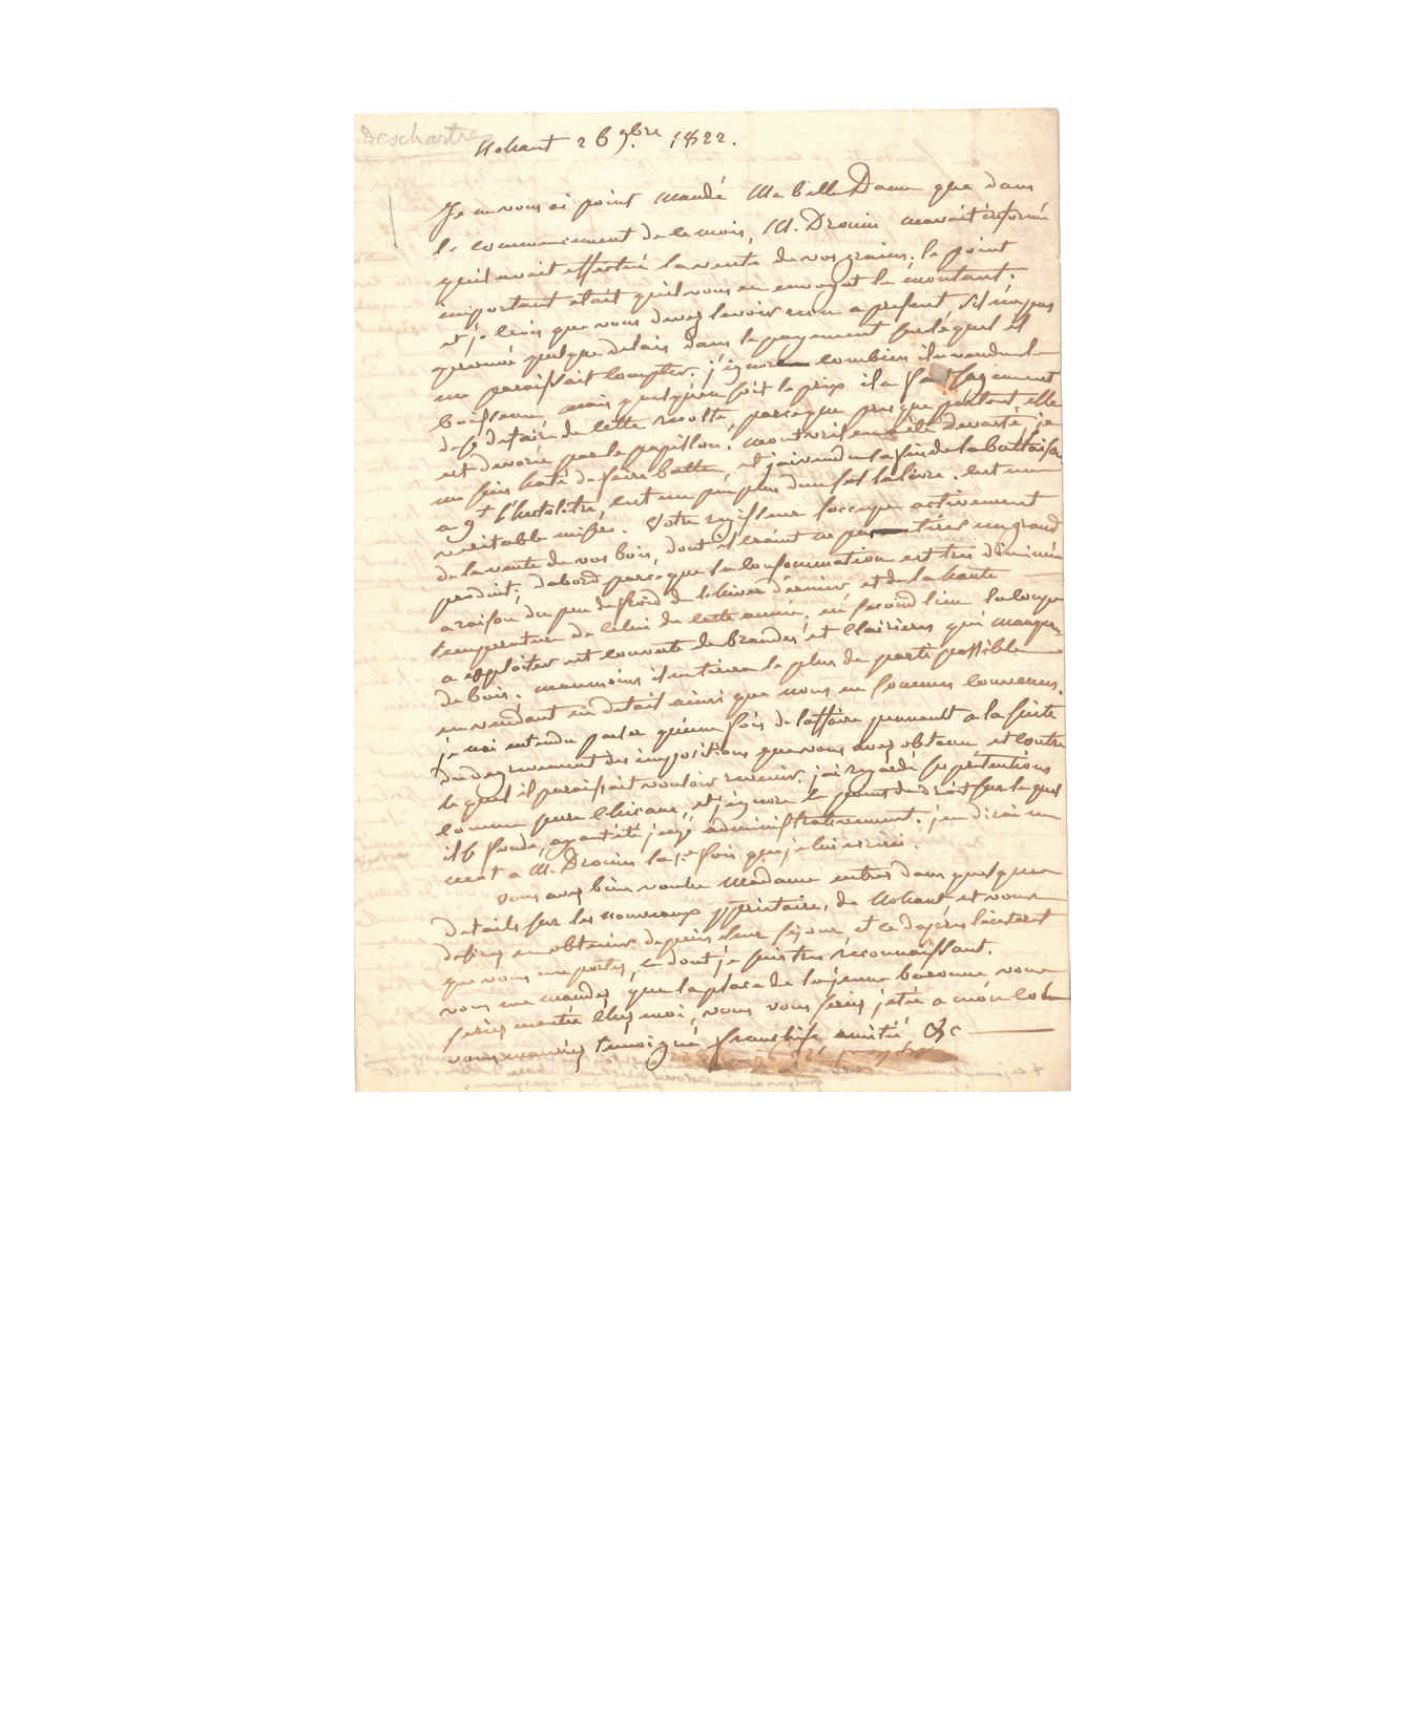 Deschartres
Nohant 26 9.bre 1822.
Je ne vous ai point mandé Ma belle Dame que dans
le commencement de le mois, M. Drouin m'avait informé
qu'il avait effectué la vente de vos grains; le point
important était qu'il vous en envoyat le montant;
et je crois que vous devez l'avoir reçu a present s'il n'a pas
quelque delais dans le payement sur lequel il
me paraissait compter. j'ignore combien il a vendu le
boisseau, mais quelque soit le prix il a fait sagement
de se defaire de cette recolte, parceque presque partout elle
est devorée par le papillon. en a été devasté, je
me suis haté de faire battre, et j'ai vendu la fin de la battaison
a 9 l'hectolitre, c'est un peu plus d'un sol la livre. c'est une
veritable misère. Votre regisseur s'occupe activement
de la vente de vos bois, dont il craint ne pas tirer un grand
produit; d'abord parceque la consommation est très diminuée
a raison du peu de froid de l'hiver dernier, et de la haute
temperature de celui de cette année; en second lieu la coupe
a exploiter est couverte de brandes et clairieres qui manquent
de bois. neanmoins il en tirera le plus de parti possible
en vendant en detail ainsi que nous en sommes convenus.
je n'ai entendu parler qu'une fois de l'affaire a la suite
du degrevement des impositions que vous avez obtenu et contre
lequel il paraissait vouloir revenir. j'ai regardé ses pretentions
comme pure chicane, et j'ignore le point de droit sur lequel
il se fonde, ayant été jugé administrativement. j'en dirai un
mot a M. Drouin la 1.re fois que je lui ecrirai.
Vous avez bien voulu Madame entrer dans quelques
details sur les nouveaux pprietaires de Nohant, et vous
desirez en obtenir depuis leur sejour, et ce d'après l'interet
que vous me portez, et dont je suis tres reconnaissant.
vous me mandez que la place de la jeune baronne, vous
seriez montée chez moi, vous vous seriez jetée a mon cou
vous m'auriez temoigné franchise, amitié &c